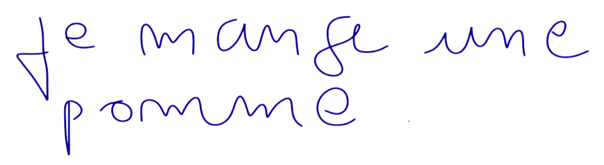 Je mange une
pomme.